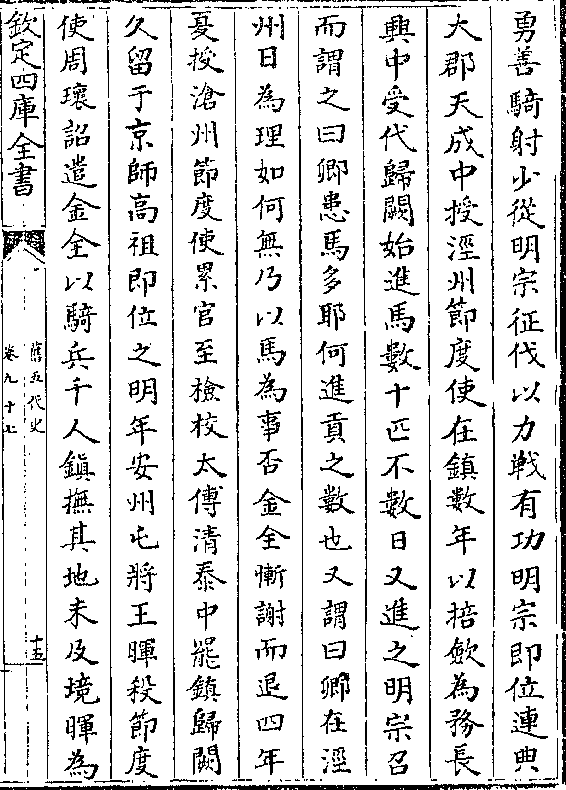 勇善騎射少從明宗征伐以力戰有功明宗即位連典
大郡天成中授涇州節度使在鎮數年以掊斂為務長
興中受代歸闕始進馬數十匹不數日又進之明宗召
而謂之曰卿患馬多耶何進貢之數也又謂曰卿在涇
州日為理如何無乃以馬為事否金全慚謝而退四年
夏授滄州節度使累官至檢校太傅清泰中罷鎮歸闕
久留于京師高祖即位之明年安州屯將王暉殺節度
使周瓌詔遣金全以騎兵千人鎮撫其地未及境暉為
欽定四庫全書
舊五代史
卷九十七
十五